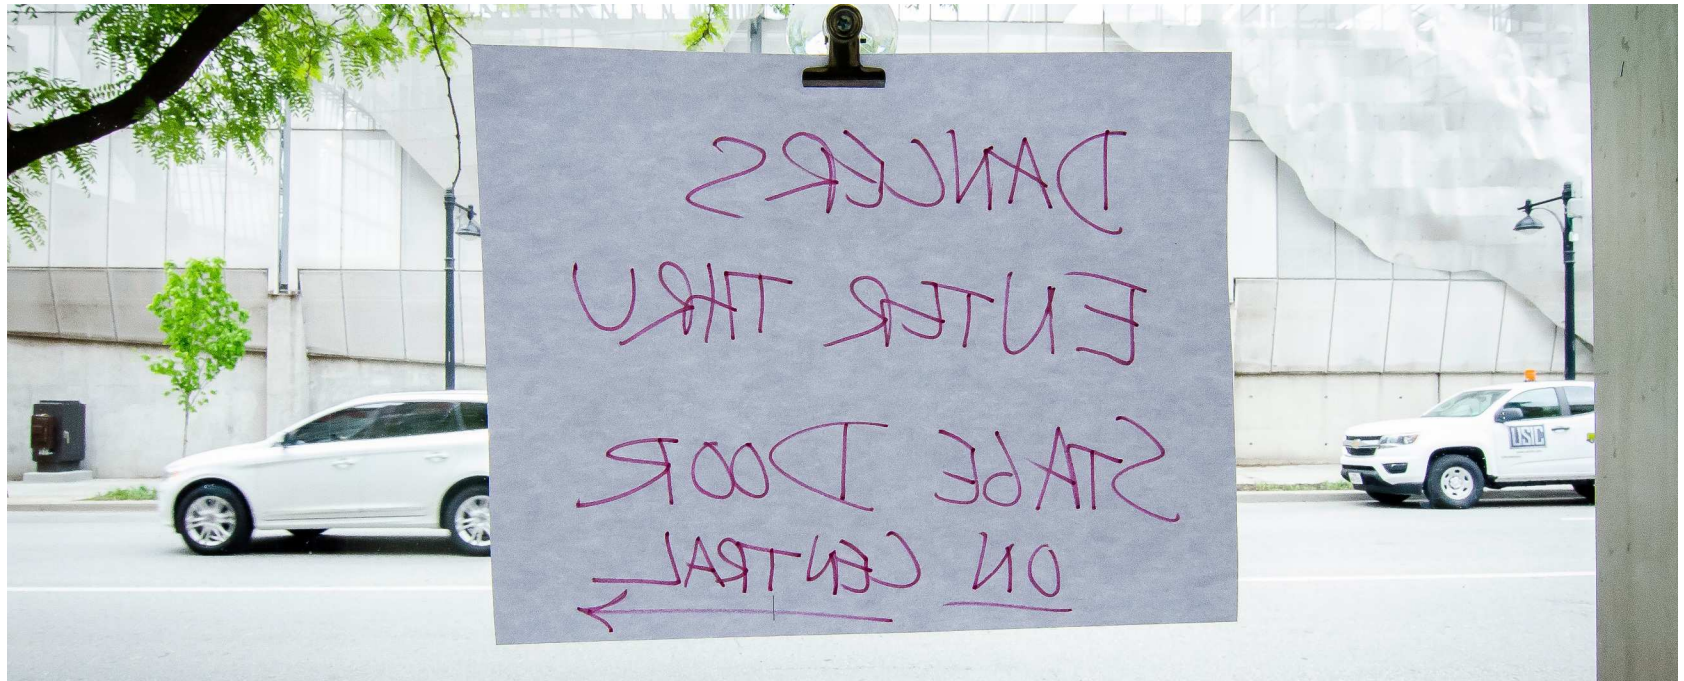 DANCERS
ENTER THRU
STAGE DOOR
ON CENTRAL
USIC